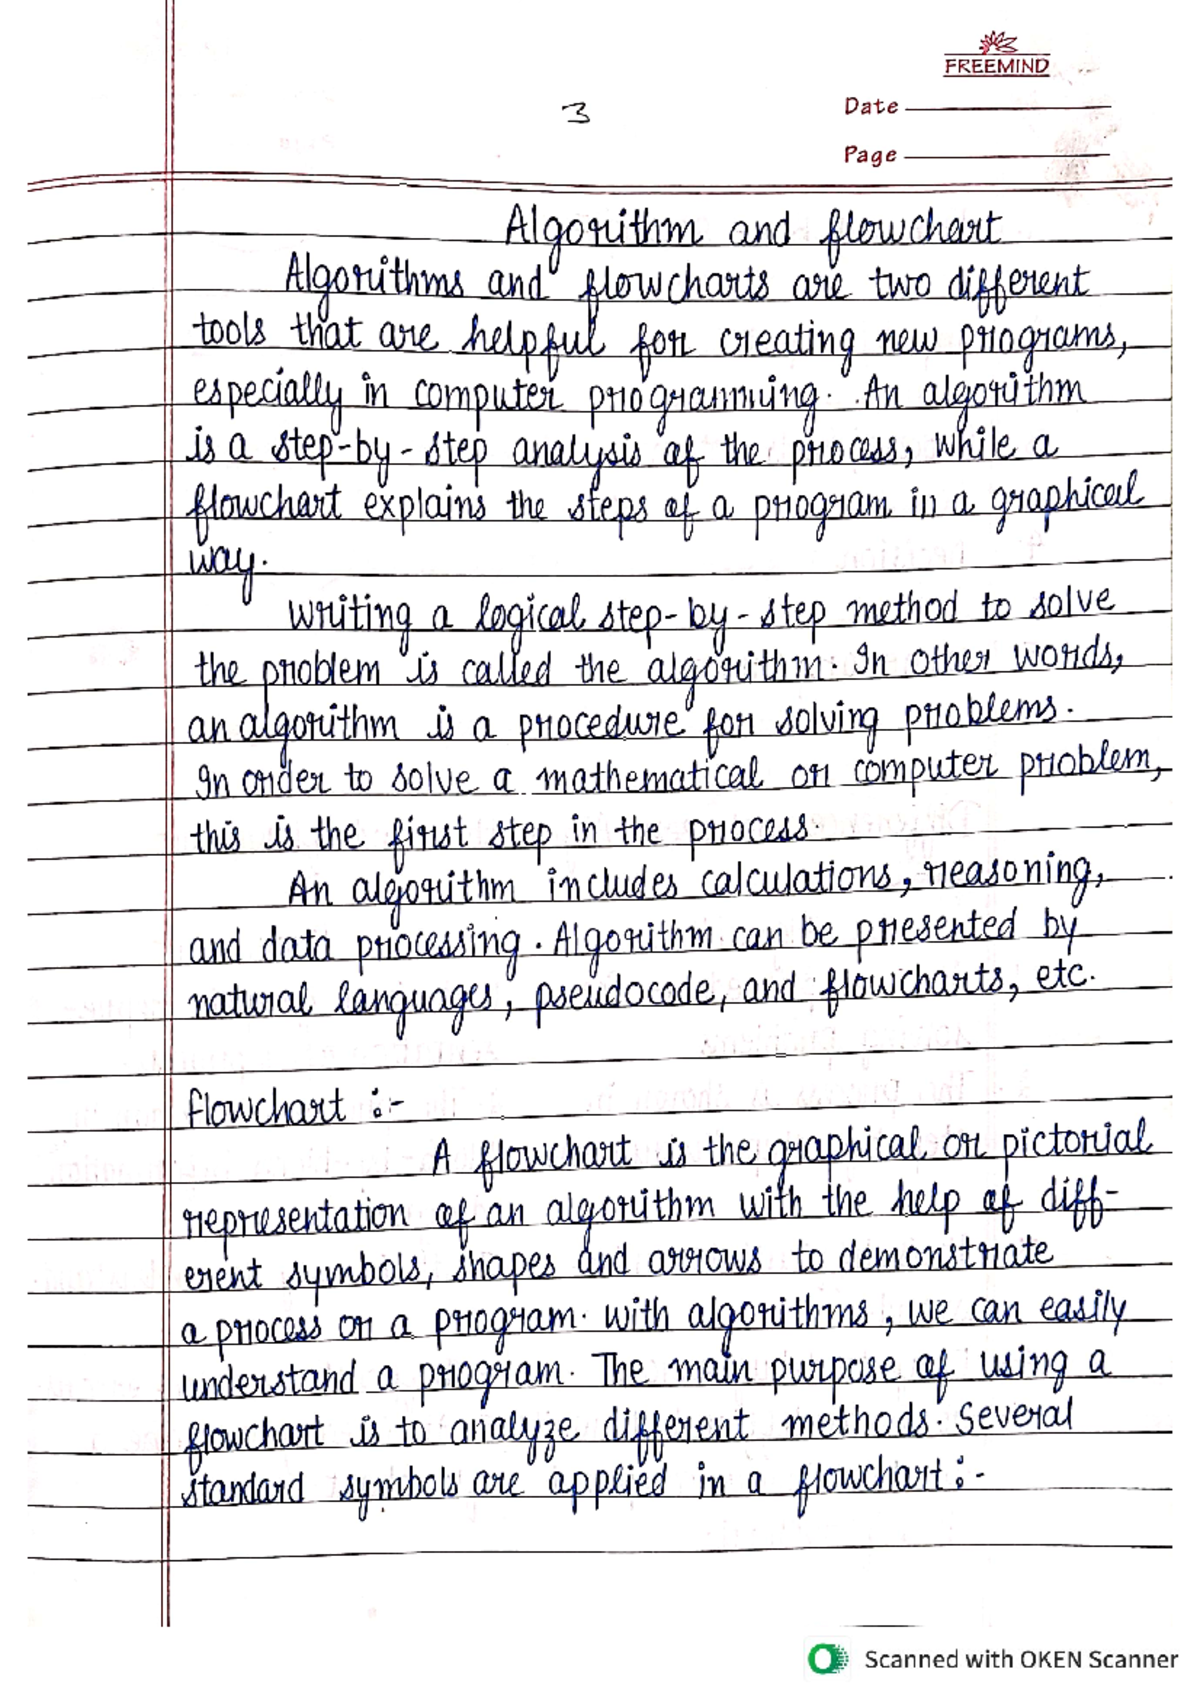 FREEMIND
3
Date
Page
Algorithm and flowchart
Algorithms and flowcharts are two different
tools that are helpful for creating new programs,
especially in computer programming. An algorithm
is a step-by-step analysis of the process, while a
flowchart explains the steps of a program in a graphical
way.
Writing a logical step-by-step method to solve
the problem is called the algorithm. In other words,
an algorithm is a procedure for solving problems.
In order to solve a mathematical or computer problem,
this is the first step in the process.
An algorithm includes calculations, reasoning,
and data processing. Algorithm can be presented by
natural languages, pseudocode, and flowcharts, etc.
flowchart :-
A flowchart is the graphical or pictorial
representation of an algorithm with the help of diff-
erent symbols, shapes and arrows to demonstrate
a process or a program. With algorithms, we can easily
understand a program. The main purpose of using a
flowchart is to analyze different methods. Several
standard symbols are applied in a flowchart :-
Scanned with OKEN Scanner